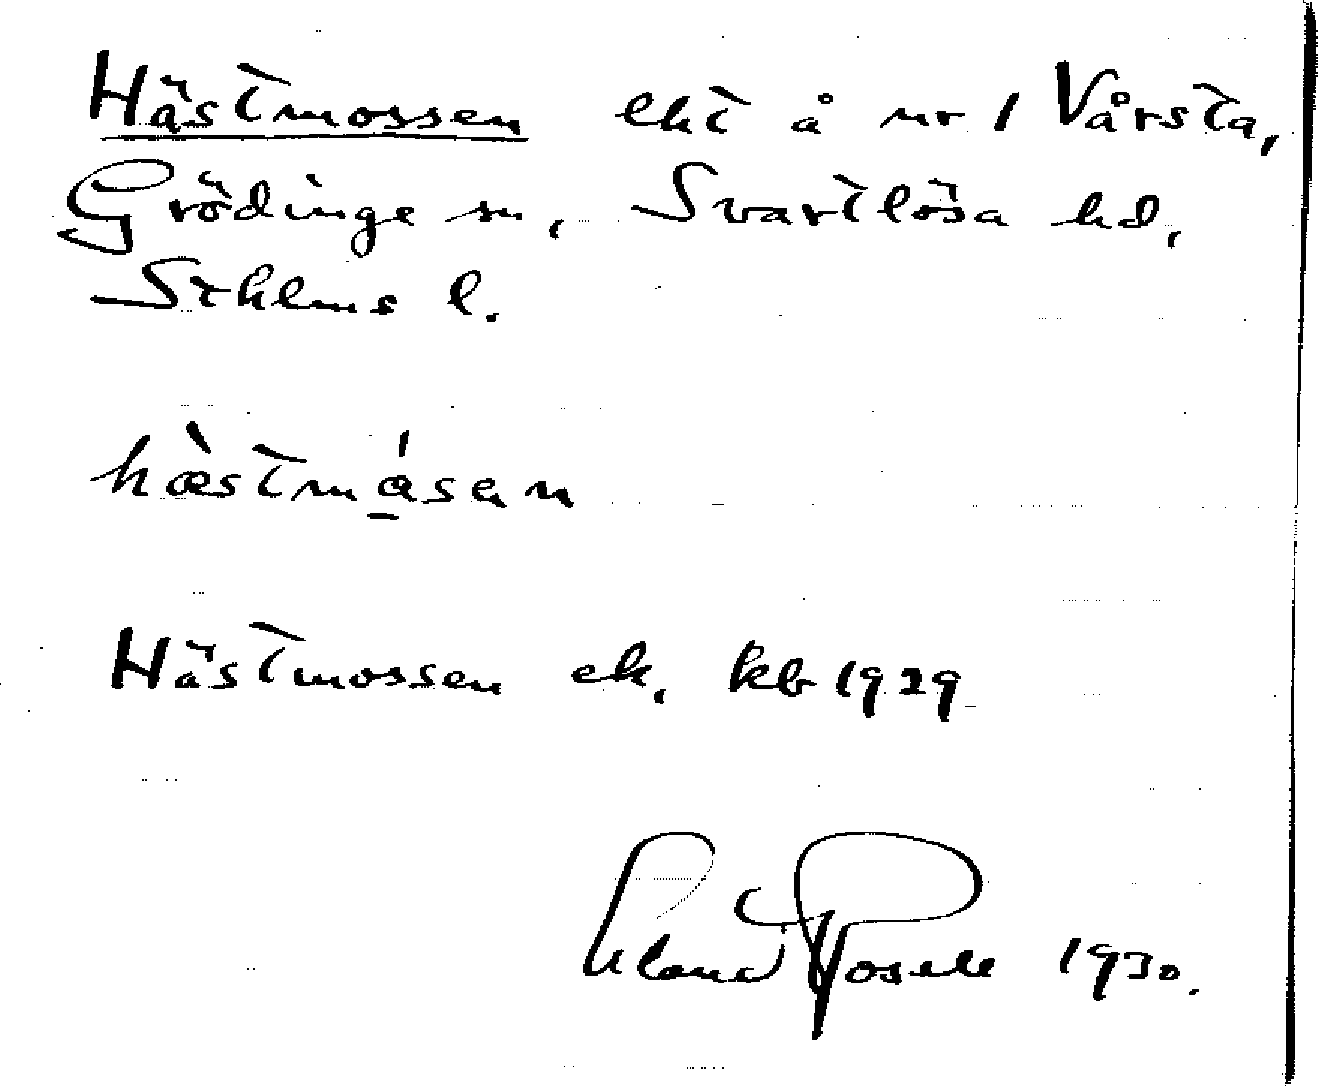 Hästmossen eht å nr 1 Vårsta,
Grödinge sn, Svartlösa hd,
Sthlms l.
hæ̀stmǻsan
Hästmossen eh. kb 1929
Roselll 1930.